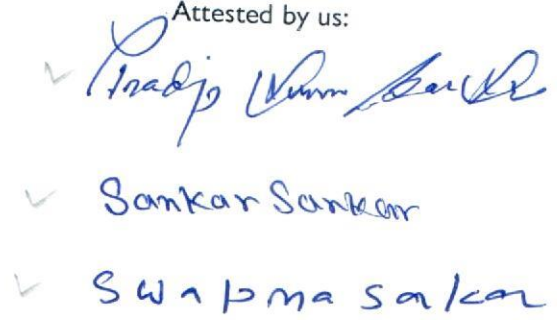 Attested by us:
Pradip Kumar Sarkar
Sankar Sarkar
Swapna Sarkar